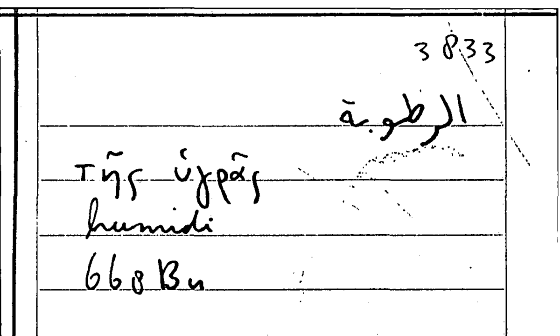 3833
الرطوبة
τῆς ὑγρᾶς
humidi
668 Bu